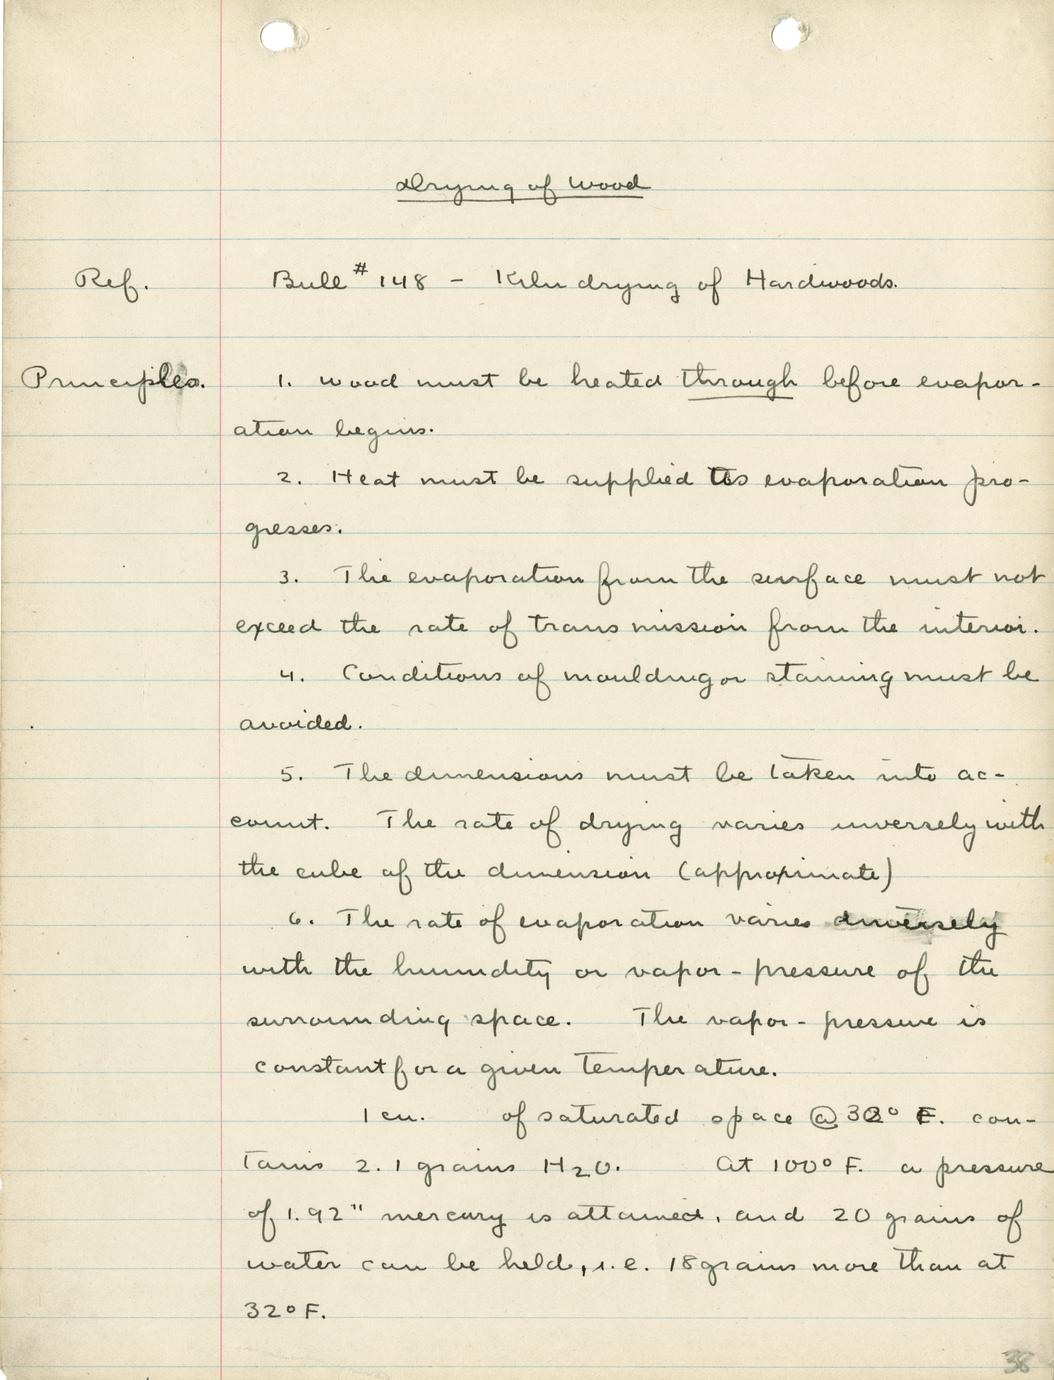 Drying of Wood
Ref. Bull # 148 - Kiln drying of Hardwoods.
Principles. 1. Wood must be heated through before evapor-
ation begins.
2. Heat must be supplied as evaporation pro-
gresses.
3. The evaporation from the surface must not
exceed the rate of transmission from the interior.
4. Conditions of moulding or staining must be
avoided.
5. The dimensions must be taken into ac-
count. The rate of drying varies inversely with
the cube of the dimension (approximate)
6. The rate of evaporation varies inversely
with the humidity or vapor-pressure of the
surrounding space. The vapor-pressure is
constant for a given temperature.
1 cu. of saturated space @ 32° F. con-
tains 2.1 grains H2O. At 100° F. a pressure
of 1.92" mercury is attained, and 20 grains of
water can be held, i.e. 18 grains more than at
32° F.
38